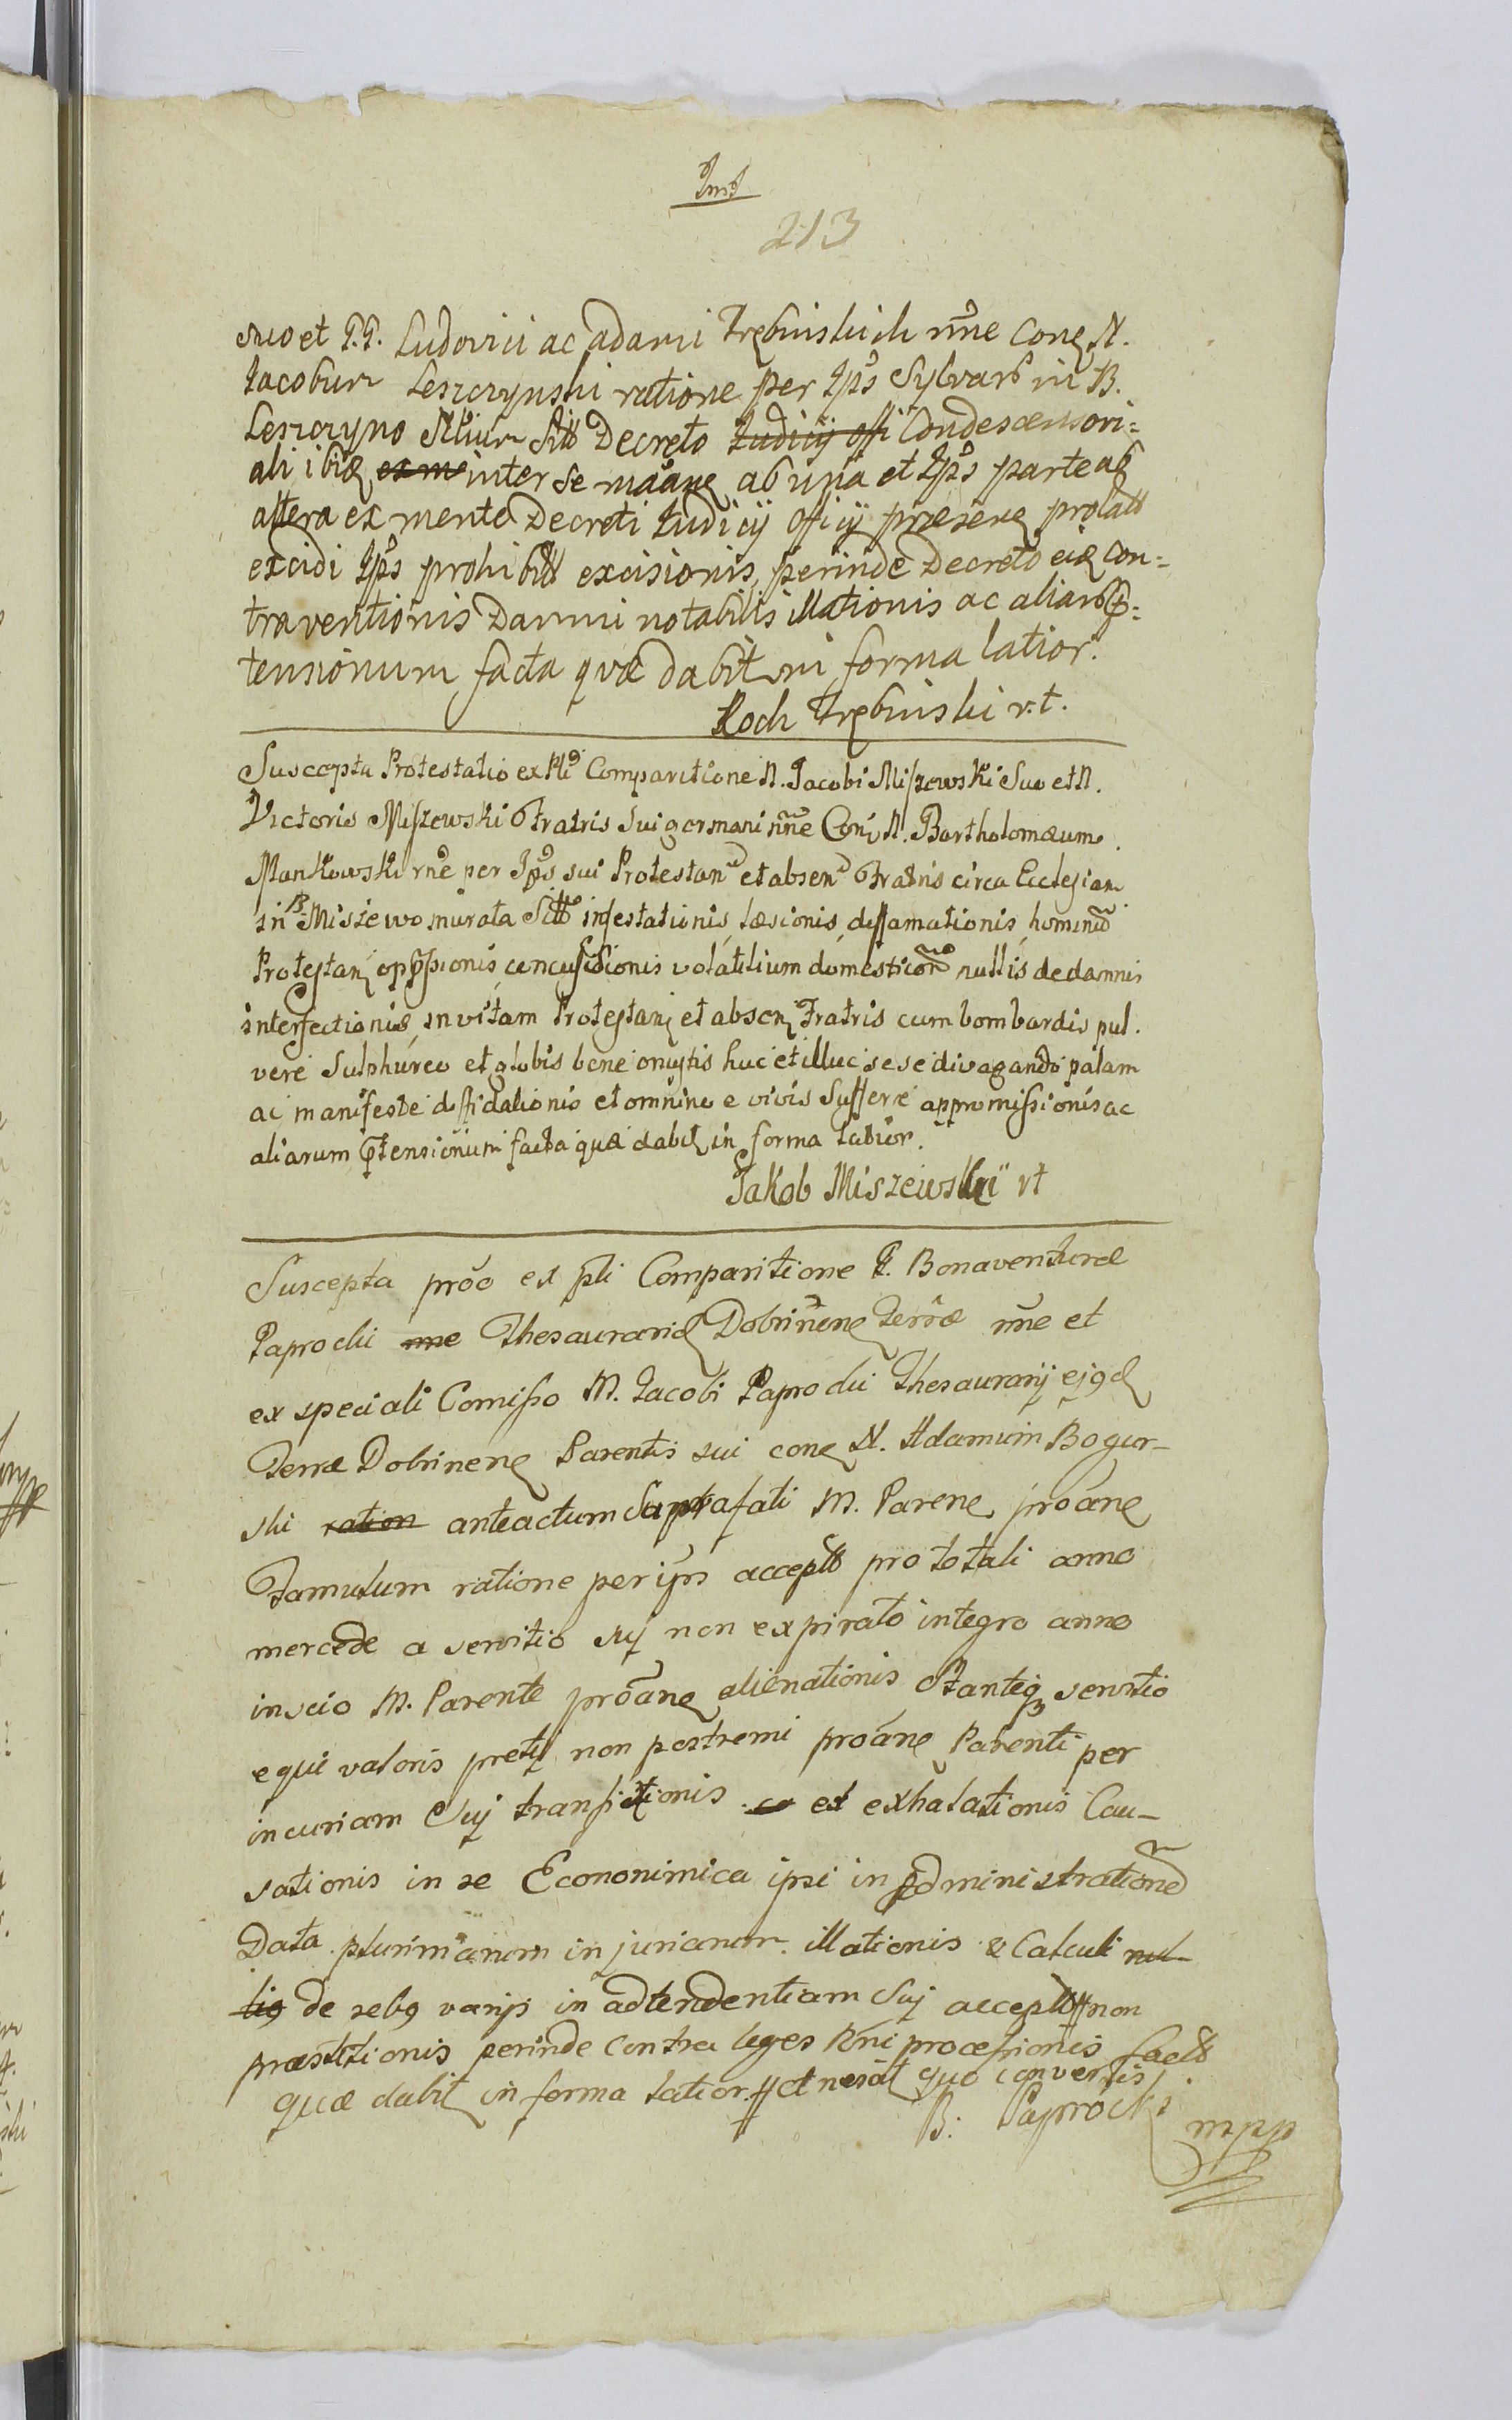 213
suo et G.G. Ludovici ac Adami Trębinskich nne Conq N.
Jacobum Leszczynski ratione per Ips Sylvarb in B.
Leszczyno Altium Sittb Decreto Judicij offi Condescensori=
ali ibiq ex me inter se maanq ab una et Ips parte ab
altera ex mente Decreti Judicij officij præsenq prolatt
excidi Ips prohibitt excisionis, perinde Decreto eiq con=
traventionis Damni notabilis illationis ac aliarb p=
tensionum facta quæ dabit in forma latior.
Roch Trębinski v.t.
Suscepta Protestatio ex Pli Comparitione N. Jacobi Miszewski Suo et N.
Victoris Miszewski Fratris Sui germani nne Coni N. Bartholomæum
Mankowski rne per Ips sui Protestan et absen Fratris circa Ecclesiam
in B. Miszewo murata Sitt infestationis, læsionis, diffamationis, hominu
Protestanz oppssionis, concussionis volatilium domesticor nullis de damnis
interfectionis, in vitam Protestanz et absenz Fratris cum bombardis pul.
vere Sulphureo et globis bene onustis huc et illuc sese divagando palam
ac manifeste diffidationis et omnino e vivis Sufferre appromissionis ac
aliarum ptensionum facta quæ dabit in forma latior.
Jakob Miszewski vt
Suscepta proo ex pli Comparitione G. Bonaventuræ
Paprocki nne Thesaurarid Dobrinenq Terræ nne et
ex speciali Comisso M. Jacobi Paprocki Thesaurarij ejqd
Terræ Dobrinenq Parentis sui conq N. Adamum Bogur-
ski ration anteactum Suprafati M. Parenq proanq
Famulum ratione per ips acceptb pro totali anno
mercede a servitio sui non expirato integro anno
inscio M. Parente proanq alienationis Stanteq servitio
equi valoris pretij non postremi proanq Parenti per
incuriam Sui transfixtionis co et exhalationis Cau-
sationis in se Econonimica ipsi in Administratione
Data plurimarum injuriarum illationis & Calculi nul-
liq de rebq varijs in adtendentiam Sui acceptb # non
præstitionis perinde contra leges Rni processionis factb
quæ dabit in forma latior. # et nesat quo conversis
B: Paprocki mpp